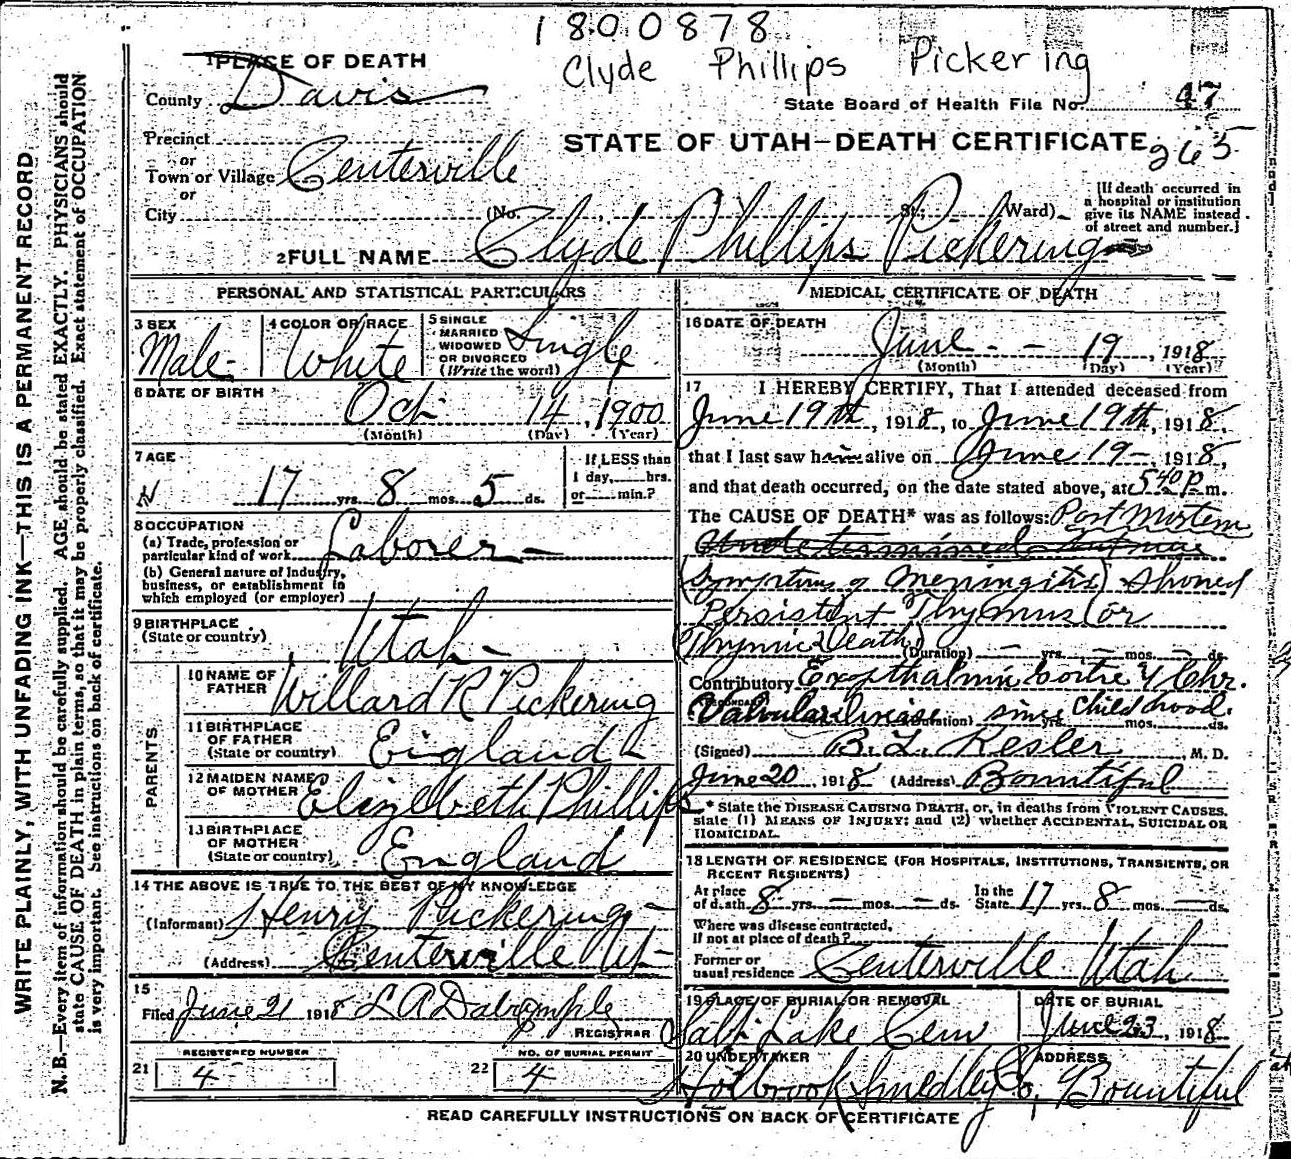 1800878
Clyde Phillips Pickering
1 PLACE OF DEATH
County Davis
State Board of Health File No. 47
Precinct
or
Town or Village Centerville
or
City
STATE OF UTAH—DEATH CERTIFICATE
265
(No. St.; Ward)
[If death occurred in
a hospital or institution
give its NAME instead
of street and number.]
2 FULL NAME Clyde Phillips Pickering
PERSONAL AND STATISTICAL PARTICULARS
3 SEX
Male
4 COLOR OR RACE
White
5 SINGLE
MARRIED
WIDOWED
OR DIVORCED
(Write the word)
Single
6 DATE OF BIRTH
Oct 14, 1900
(Month) (Day) (Year)
7 AGE
17 yrs. 8 mos. 5 ds.
If LESS than
1 day, hrs.
or min.?
8 OCCUPATION
(a) Trade, profession or
particular kind of work Laborer
(b) General nature of Industry,
business, or establishment in
which employed (or employer)
9 BIRTHPLACE
(State or country) Utah
PARENTS
10 NAME OF
FATHER Willard R Pickering
11 BIRTHPLACE
OF FATHER
(State or country) England
12 MAIDEN NAME
OF MOTHER Elizebeth Phillips
13 BIRTHPLACE
OF MOTHER
(State or country) England
14 THE ABOVE IS TRUE TO THE BEST OF MY KNOWLEDGE
(Informant) Henry Pickering
(Address) Centerville Ut
15
Filed June 21 1918 L A
REGISTRAR
REGISTERED NUMBER
21 4
NO. OF BURIAL PERMIT
22 4
MEDICAL CERTIFICATE OF DEATH
16 DATE OF DEATH
June 19, 1918
(Month) (Day) (Year)
17 I HEREBY CERTIFY, That I attended deceased from
June 19th, 1918, to June 19th, 1918,
that I last saw him alive on June 19 1918,
and that death occurred, on the date stated above, at 5 40 P m.
The CAUSE OF DEATH* was as follows: Post Mortem
(Symptoms of Meningitis) showed
Persistent Thymus (or
Thymic Death)
(Duration) yrs. mos. ds.
Contributory Exopthalmic Goitre & Chr.
Valvular disease (Duration) since childhood. yrs. mos. ds.
(Signed) B. L. Kesler M. D.
June 20 1918 (Address) Bountiful
* State the DISEASE CAUSING DEATH, or, in deaths from VIOLENT CAUSES,
state (1) MEANS OF INJURY; and (2) whether ACCIDENTAL, SUICIDAL OR
HOMICIDAL.
18 LENGTH OF RESIDENCE (FOR HOSPITALS, INSTITUTIONS, TRANSIENTS, OR
RECENT RESIDENTS)
At place
of death 8 yrs. mos. ds.
In the
State 17 yrs. 8 mos. ds.
Where was disease contracted,
if not at place of death?
Former or
usual residence Centerville Utah
19 PLACE OF BURIAL OR REMOVAL
Salt Lake Cem
DATE OF BURIAL
June 23, 1918
20 UNDERTAKER
Holbrook Smedley Co,
ADDRESS
Bountiful
READ CAREFULLY INSTRUCTIONS ON BACK OF CERTIFICATE
WRITE PLAINLY, WITH UNFADING INK—THIS IS A PERMANENT RECORD
N. B.—Every item of information should be carefully supplied. AGE should be stated EXACTLY. PHYSICIANS should
state CAUSE OF DEATH in plain terms, so that it may be properly classified. Exact statement of OCCUPATION
is very important. See instructions on back of certificate.